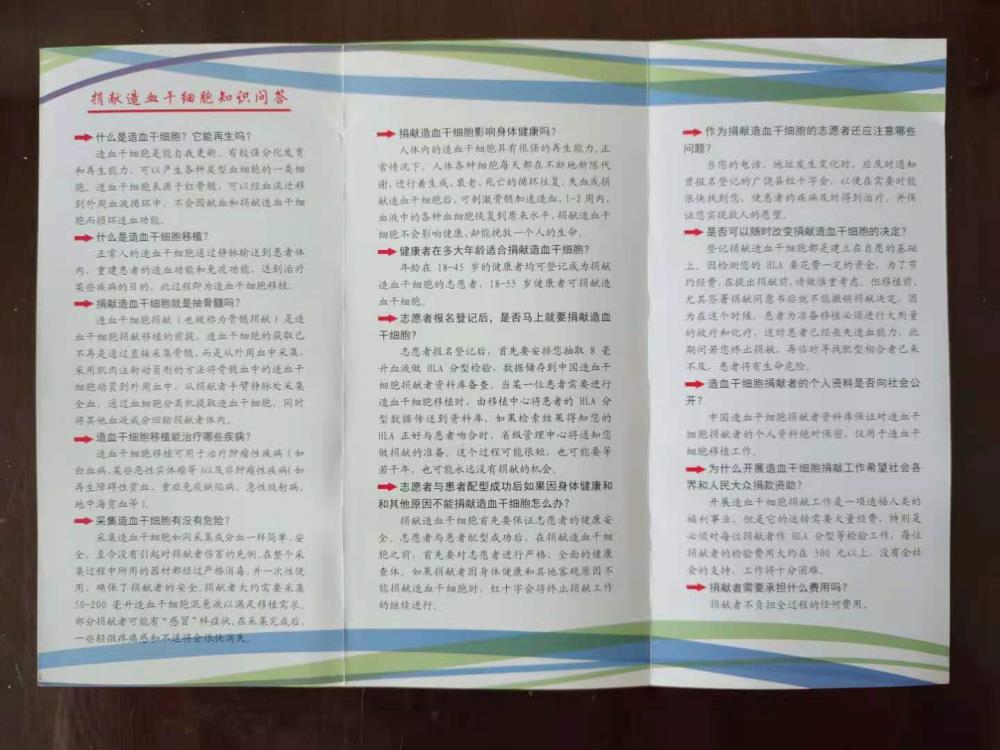 捐献造血干细胞知识问答
什么是造血干细胞？它能再生吗？
造血干细胞是能自我更新、有较强分化发育
和再生能力、可以产生各种类型血细胞的一类细
胞。造血干细胞来源于红骨髓，可以经血流迁移
到外周血液循环中，不会因献血和捐献造血干细
胞而损坏造血功能。
什么是造血干细胞移植？
正常人的造血干细胞通过静脉输送到患者体
内，重建患者的造血功能和免疫功能，达到治疗
某些疾病的目的，此过程即为造血干细胞移植。
捐献造血干细胞就是抽骨髓吗？
造血干细胞捐献（也被称为骨髓捐献）是造
血干细胞捐献移植的前提，造血干细胞的获取已
不再是通过直接采集骨髓，而是从外周血中采集，
采用肌肉注射动员剂的方法将骨髓血中的造血干
细胞动员到外周血中，从捐献者手臂静脉处采集
全血，通过血细胞分离机提取造血干细胞，同时
将其他血液成分回输捐献者体内。
造血干细胞移植能治疗哪些疾病？
造血干细胞移植可用于治疗肿瘤性疾病（如
白血病、某些恶性实体瘤等）以及非肿瘤性疾病（如
再生障碍性贫血、重症免疫缺陷病、急性放射病、
地中海贫血等）。
采集造血干细胞有没有危险？
采集造血干细胞如同采集成分血一样简单、安
全，至今没有引起对捐献者伤害的先例。在整个采
集过程中所用的器材都经过严格消毒，并一次性使
用，确保了捐献者的安全。捐献者大约需要采集
50-200 毫升造血干细胞混悬液以满足移植需求。
部分捐献者可能有“感冒”样症状，在采集完成后，
一些轻微疼痛感和不适将会很快消失。
捐献造血干细胞影响身体健康吗？
人体内的造血干细胞具有很强的再生能力。正
常情况下，人体各种细胞每天都在不断地新陈代
谢，进行着生成、衰老、死亡的循环往复，失血或捐
献造血干细胞后，可刺激骨髓加速造血，1-2 周内，
血液中的各种血细胞恢复到原来水平，捐献造血干
细胞不会影响健康，却能挽救一个人的生命。
健康者在多大年龄适合捐献造血干细胞？
年龄在 18-45 岁的健康者均可登记成为捐献
造血干细胞的志愿者，18-55 岁健康者可捐献造
血干细胞。
志愿者报名登记后，是否马上就要捐献造血
干细胞？
志愿者报名登记后，首先要安排您抽取 8 毫
升血液做 HLA 分型检验，数据储存到中国造血干
细胞捐献者资料库备查。当某一位患者需要进行
造血干细胞移植时，由移植中心将患者的 HLA 分
型数据传送到资料库，如果检索结果得知您的
HLA 正好与患者吻合时，省级管理中心将通知您
做捐献的准备。这个过程可能很短，也可能要等
若干年，也可能永远没有捐献的机会。
志愿者与患者配型成功后如果因身体健康和
和其他原因不能捐献造血干细胞怎么办？
捐献造血干细胞首先要保证志愿者的健康安
全。志愿者与患者配型成功后，在捐献造血干细
胞之前，首先要对志愿者进行严格、全面的健康
查体，如果捐献者因身体健康和其他客观原因不
能捐献造血干细胞时，红十字会将终止捐献工作
的继续进行。
作为捐献造血干细胞的志愿者还应注意哪些
问题？
当您的电话、地址发生变化时，应及时通知
曾报名登记的广饶县红十字会，以便在需要时能
很快找到您，使患者的疾病及时得到治疗，并保
证您实现救人的愿望。
是否可以随时改变捐献造血干细胞的决定？
登记捐献造血干细胞都是建立在自愿的基础
上。因检测您的 HLA 要花费一定的资金，为了节
约经费，在提出捐献前，请做慎重考虑。但移植前，
尤其签署捐献同意书后就不能撤销捐献决定，因
为在这个时候，患者为准备移植必须进行大剂量
的放疗和化疗，这时患者已经丧失造血能力，此
期间若您终止捐献，再临时寻找配型相合者已来
不及，患者将有生命危险。
造血干细胞捐献者的个人资料是否向社会公
开？
中国造血干细胞捐献者资料库保证对造血干
细胞捐献者的个人资料绝对保密，仅用于造血干
细胞移植工作。
为什么开展造血干细胞捐献工作希望社会各
界和人民大众捐款资助？
开展造血干细胞捐献工作是一项造福人类的
福利事业，但是它的运转需要大量经费，特别是
必须对每位捐献者作 HLA 分型等检验工作，每位
捐献者的检验费用大约在 500 元以上，没有全社
会的支持，工作将十分困难。
捐献者需要承担什么费用吗？
捐献者不负担全过程的任何费用。